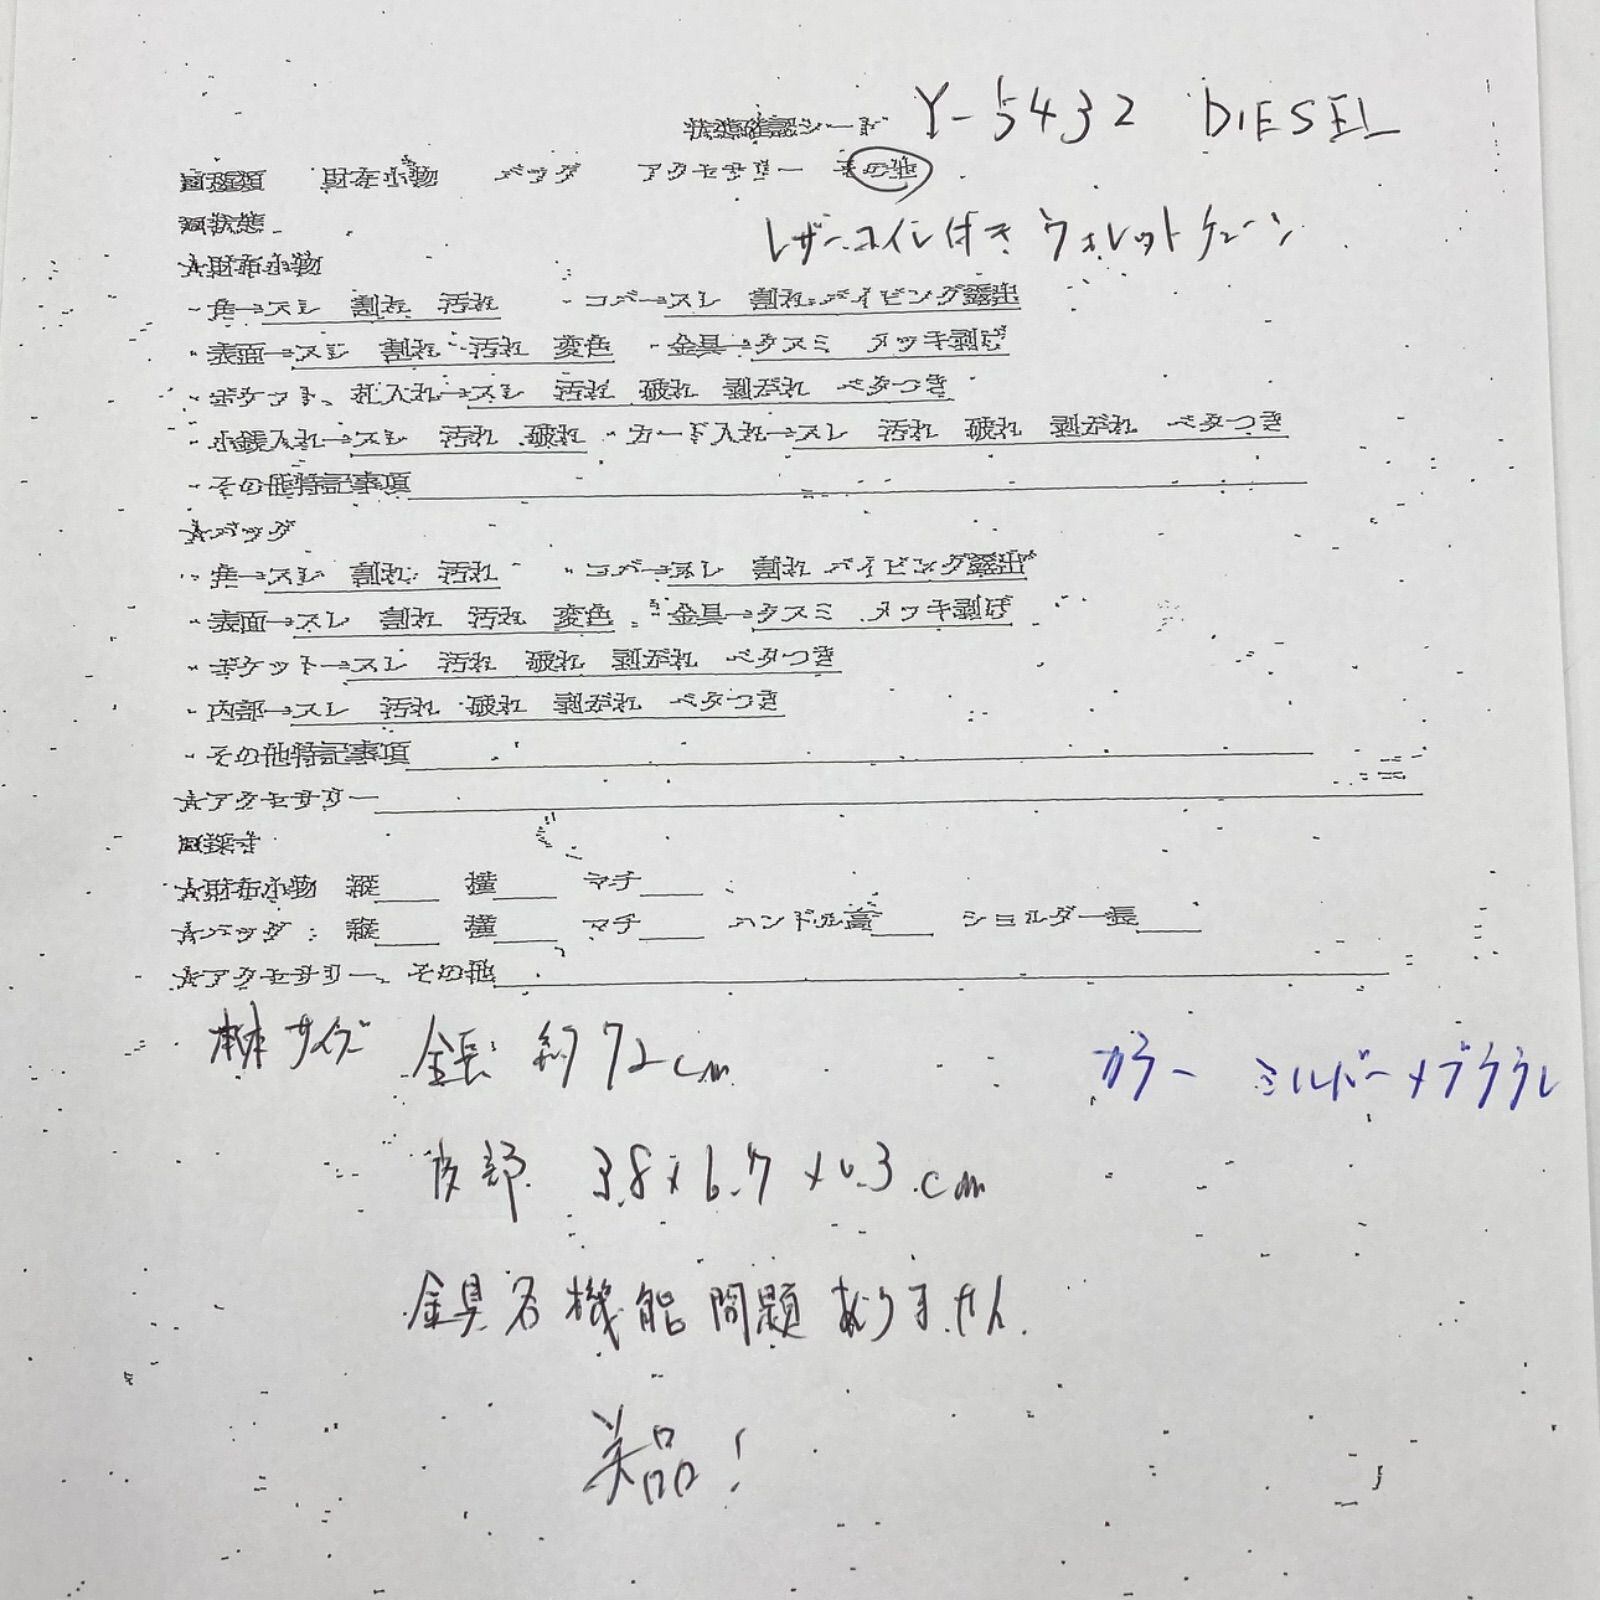 状態確認シート Y-5432 DIESEL
■種類 財布小物 バッグ アクセサリー その他
■状態 レザーコイン付き ウォレットチェーン
☆財布小物
・角→スレ 割れ 汚れ ・コバ→スレ 割れ パイピング露出
・表面→スレ 割れ 汚れ 変色 ・金具→クスミ メッキ剥げ
・ポケット、札入れ→スレ 汚れ 破れ 剥がれ ベタつき
・小銭入れ→スレ 汚れ 破れ ・カード入れ→スレ 汚れ 破れ 剥がれ ベタつき
・その他特記事項
☆バッグ
・角→スレ 割れ 汚れ ・コバ→スレ 割れ パイピング露出
・表面→スレ 割れ 汚れ 変色 ・金具→クスミ メッキ剥げ
・ポケット→スレ 汚れ 破れ 剥がれ ベタつき
・内部→スレ 汚れ 破れ 剥がれ ベタつき
・その他特記事項
☆アクセサリー
■採寸
☆財布小物 縦 横 マチ
☆バッグ: 縦 横 マチ ハンドル高 ショルダー長
☆アクセサリー、その他
本体サイズ 全長 約72cm
カラー シルバー×ブラウン
皮部 3.8×6.7×0.3cm
金具各機能問題ありません.
美品!